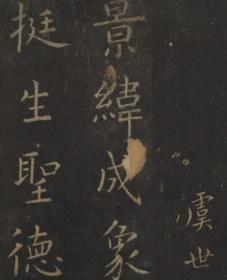 虞世
景緯成象
挺生聖德